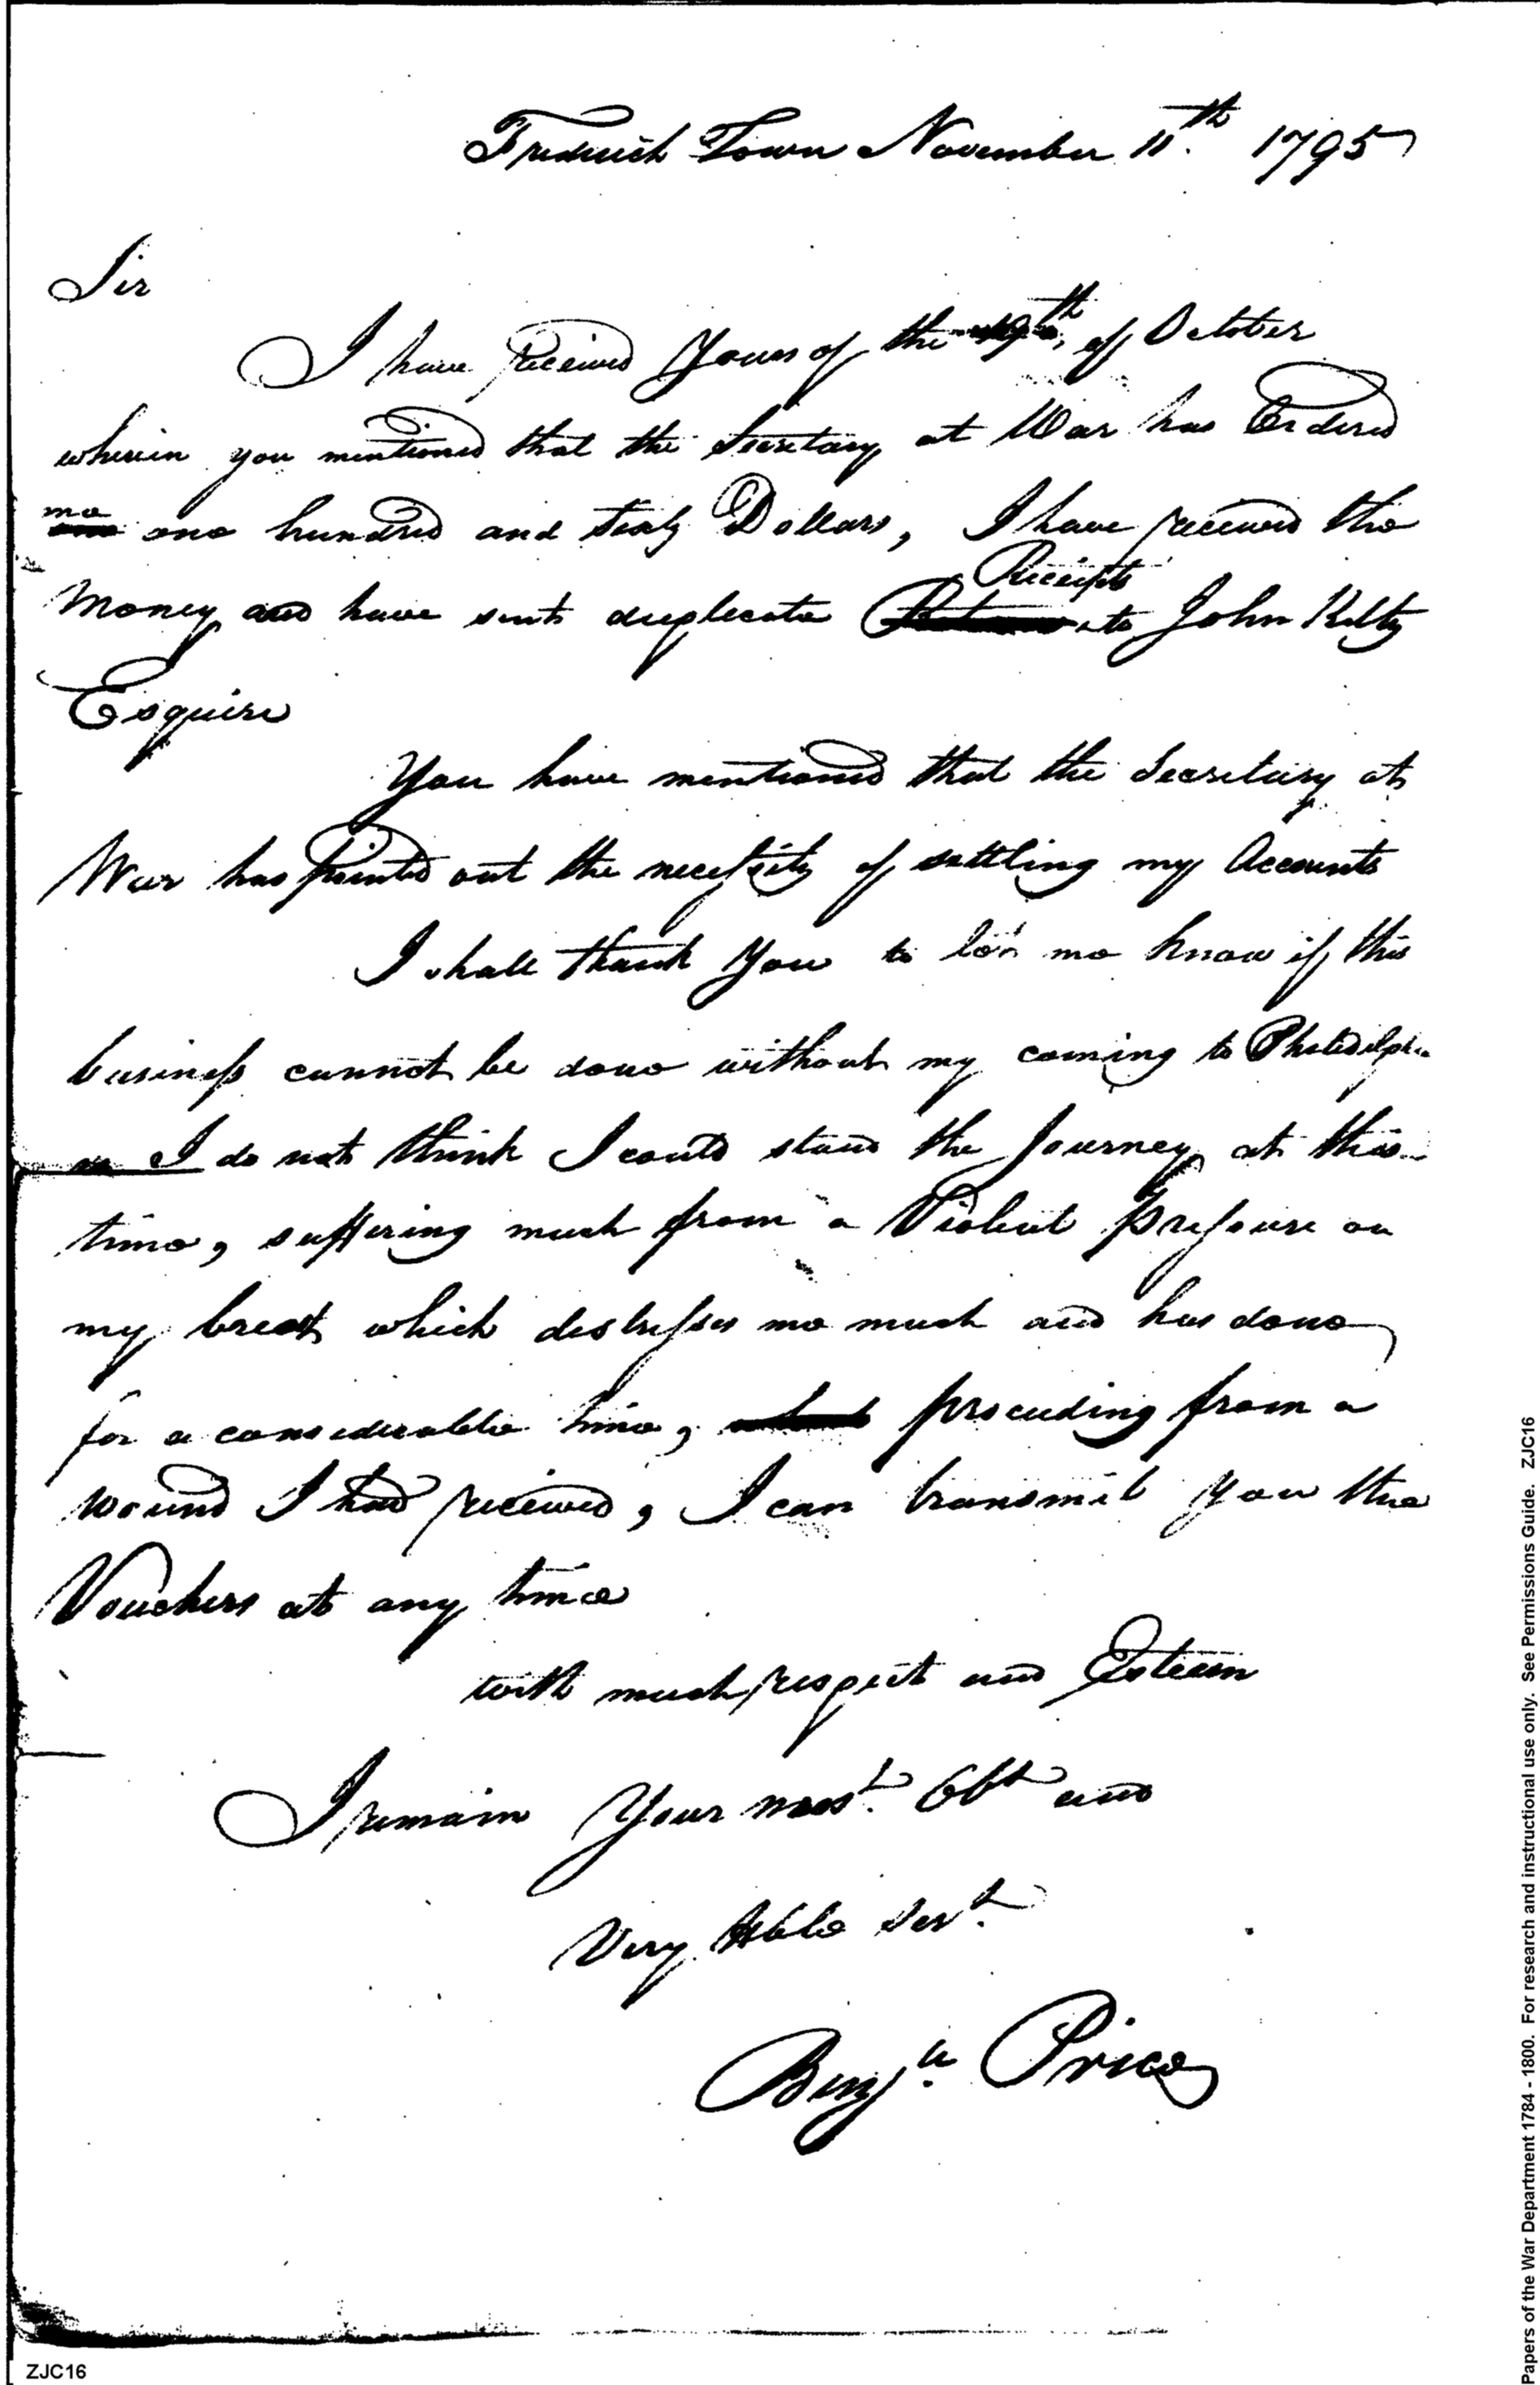 Frederick Town November 11th. 1795
Sir
I have Received Yours of the 19th, of October
wherein you mentioned that the Secretary at War has Ordered
me one hundred and Sixty Dollars, I have received the
Money and have sent duplicate Receipts to John Kilty
Esquire
You have mentioned that the Secretary at
War has Pointed out the necessity of settling my Accounts
I shall thank You to let me know if this
business cannot be done without my coming to Philidelphia
I do not think I could stand the Journey at this
time, suffering much from a Violent Pressure on
my breast which distresses me much and has done
for a considerable time, proceeding from a
wound I had received, I can transmit you the
Vouchers at any time
with much respect and Esteem
I remain Your most. Obt and
Very Hble Servt.
Benja. Price
ZJC16
Papers of the War Department 1784 - 1800. For research and instructional use only. See Permissions Guide. ZJC16